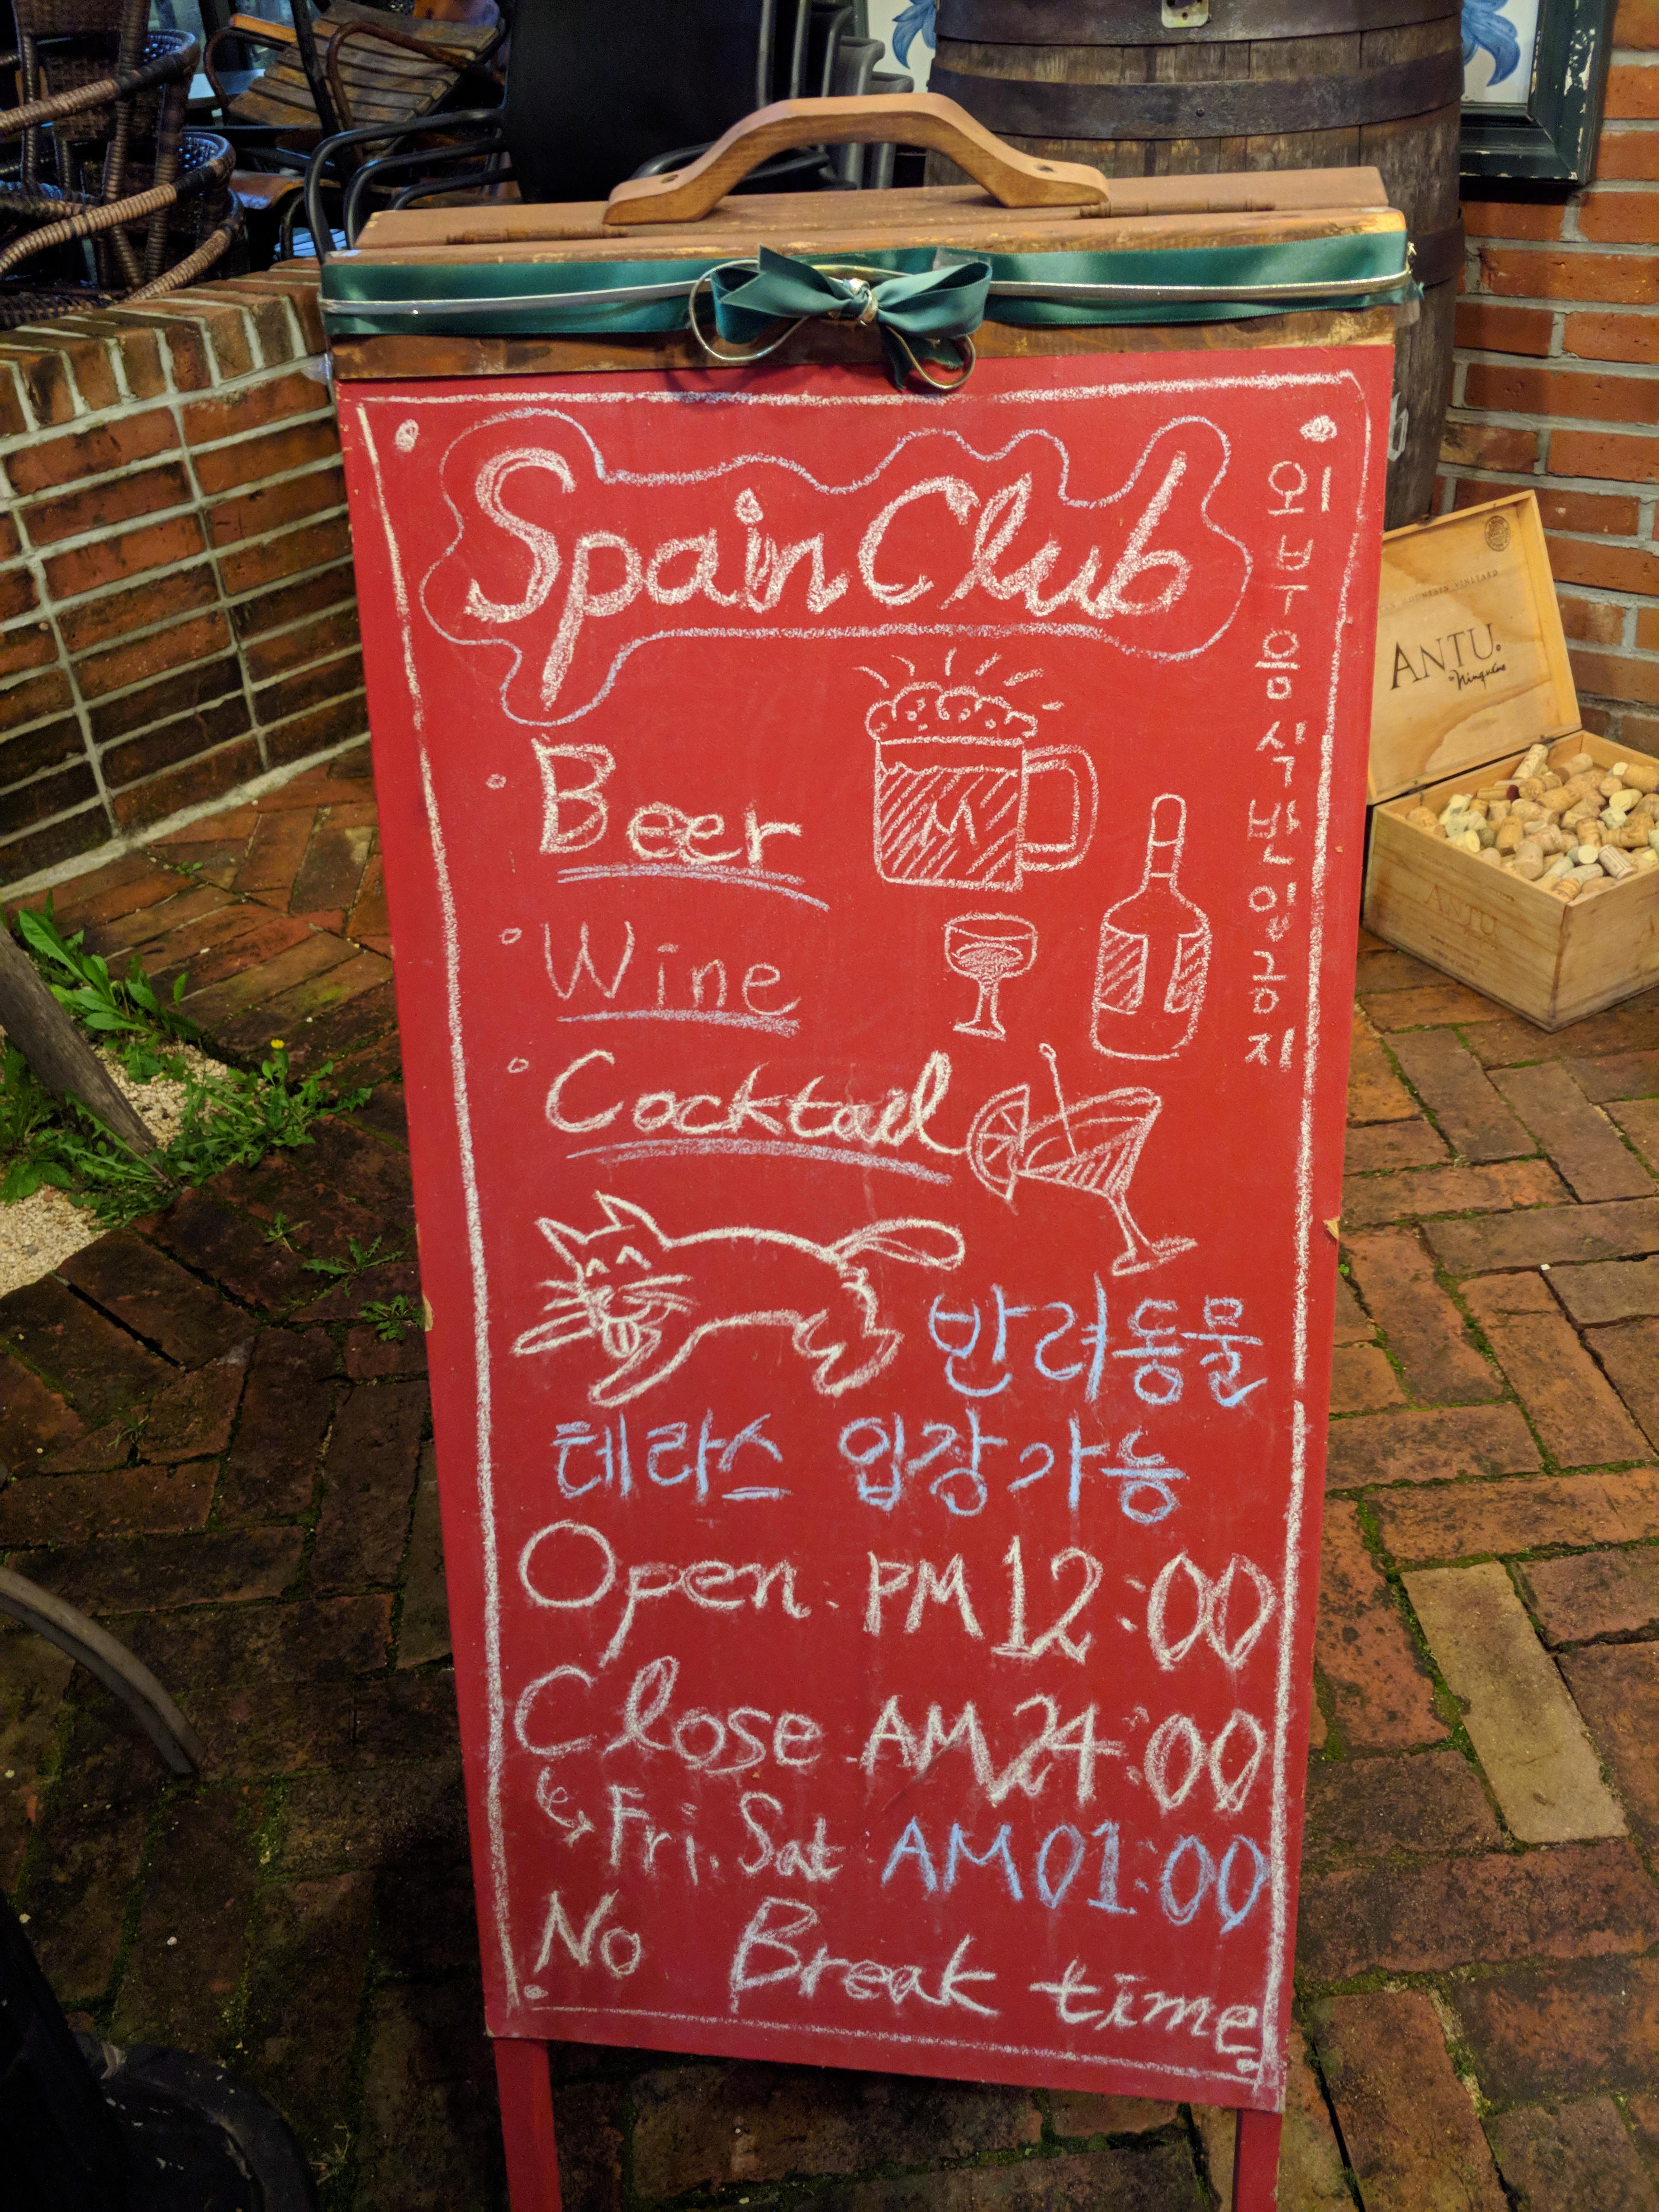 Spain Club
외부음식반입금지
Beer
Wine
Cocktail
반려동물
테라스 입장가능
Open. PM 12:00
Close AM 24:00
Fri. Sat AM 01:00
No Break time
ANTU
Ninquén
ANTU